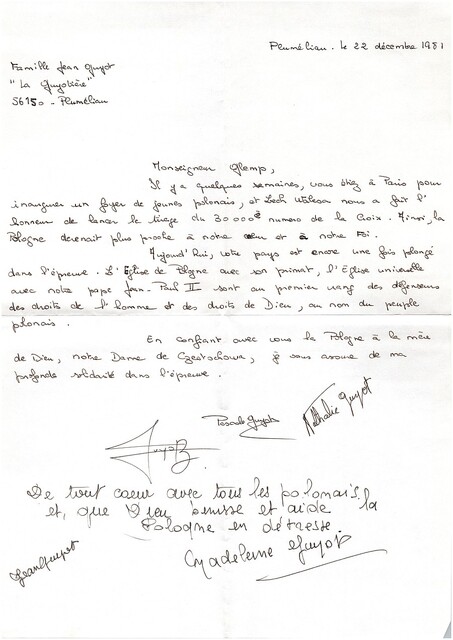 Plumélian. le 22 décembre 1981
Famille Jean Guyot
"La Guyotière"
56150 - Plumélian
Monseigneur Glemp,
Il y a quelques semaines, vous étiez à Paris pour
inaugurer un foyer de jeunes polonais, et Lech Walesa nous a fait l'
honneur de lancer le tirage du 30 000e numero de la Croix. Ainsi, la
Pologne devenait plus proche à notre cœur et à notre Foi.
Aujourd'hui, votre pays est encore une fois plongé
dans l'épreuve. L'Eglise de Pologne avec son primat, l'Eglise universelle
avec notre pape Jean-Paul II sont au premier rang des défenseurs
des droits de l'homme et des droits de Dieu, au nom du peuple
polonais.
En confiant avec vous la Pologne à la mère
de Dieu, notre Dame de Czestochowa, je vous assure de ma
profonde solidarité dans l'épreuve.
Pascale Guyot
Nathalie Guyot
De tout coeur avec tous les polonais
et, que Dieu bénisse et aide la
Pologne en détresse.
Madeleine Guyot
Jean Guyot